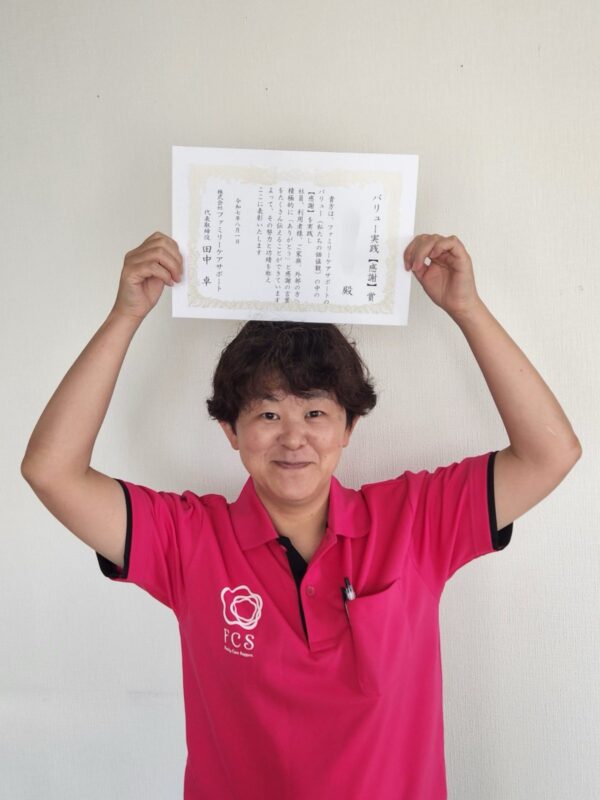 バリュー実践【感謝】賞
殿
貴方は、ファミリーケアサポートの
バリュー(私たちの価値観)の中の
【感謝】を実践し
社員、利用者様、ご家族、外部の方へ
積極的に「ありがとう」と感謝の言葉
をたくさん伝えることができています
よって、その努力と功績を称え
ここに表彰いたします
令和七年八月一日
株式会社ファミリーケアサポート
代表取締役 田中 卓
FCS
Family Care Support